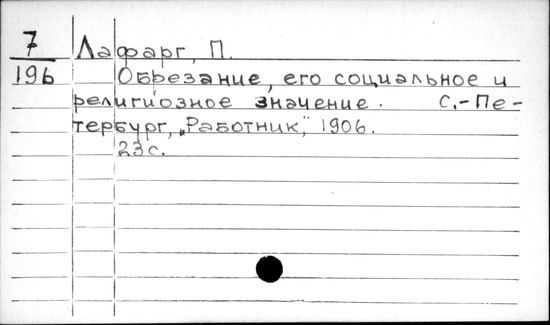 7 Лафарг, П.
196 Обрезание, его социальное и
религиозное значение. С.-Пе-
тербург, „Работник", 1906.
23с.